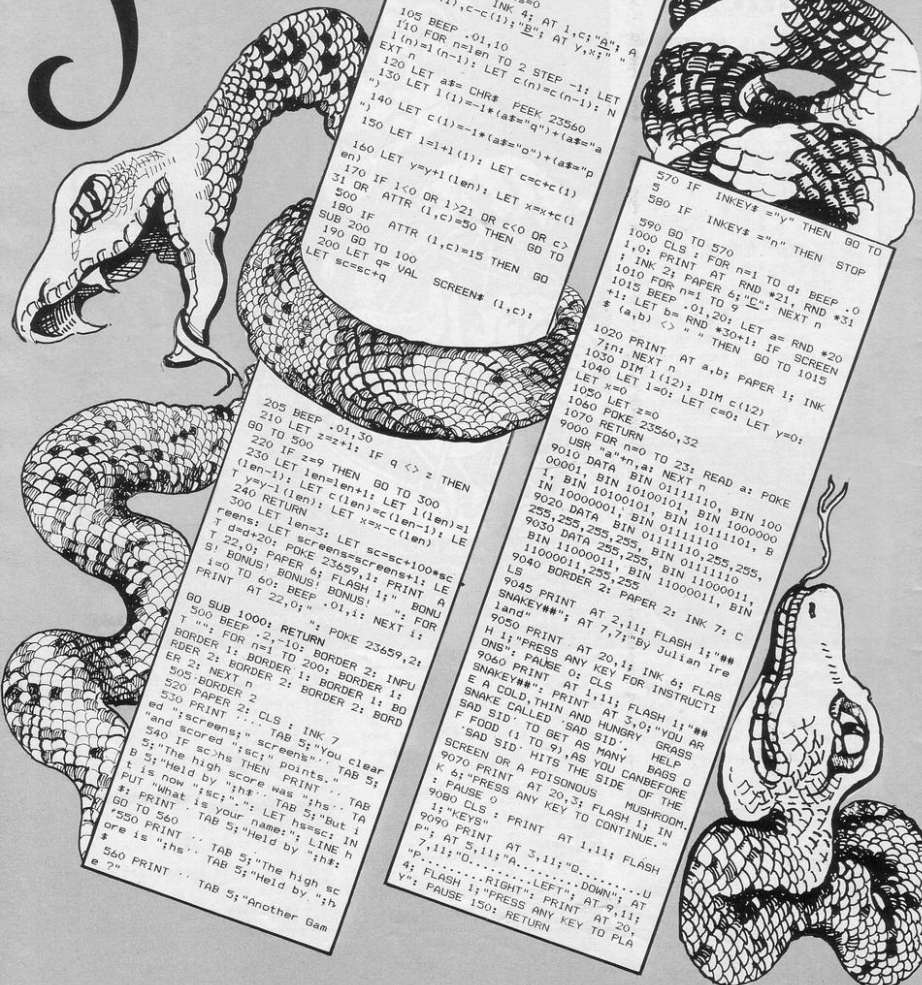 s=0
INK 4; AT 1,c;"A"; A
1),c-c(1);"B"; AT y,x;" "
105 BEEP .01,10
110 FOR n=len TO 2 STEP -1: LET
l(n)=l(n-1): LET c(n)=c(n-1): N
EXT n
120 LET a$= CHR$ PEEK 23560
130 LET l(1)=-1*(a$="q")+(a$="a
")
140 LET c(1)=-1*(a$="o")+(a$="p
")
150 LET l=l+l(1): LET c=c+c(1)
160 LET y=y+l(len): LET x=x+c(l
en)
170 IF l<0 OR l>21 OR c<0 OR c>
31 OR ATTR (l,c)=50 THEN GO TO
500
180 IF ATTR (l,c)=15 THEN GO
SUB 200
190 GO TO 100
200 LET q= VAL SCREEN$ (l,c):
LET sc=sc+q
205 BEEP .01,30
210 LET z=z+1: IF q <> z THEN
GO TO 500
220 IF z=9 THEN GO TO 300
230 LET len=len+1: LET l(len)=l
(len-1): LET c(len)=c(len-1): LE
T y=y-l(len): LET x=x-c(len)
240 RETURN
300 LET len=3: LET sc=sc+100*sc
reens: LET screens=screens+1: LE
T d=d+20: POKE 23659,1: PRINT A
T 22,0; PAPER 6; FLASH 1;" BONU
S! BONUS! BONUS! BONUS! ": FOR
i=0 TO 60: BEEP .01,i: NEXT i:
PRINT AT 22,0;" ": POKE 23659,2:
GO SUB 1000: RETURN
500 BEEP .2,-10: BORDER 2: INPU
T "": FOR n=1 TO 200: BORDER 1:
BORDER 1: BORDER 1: BORDER 1: BO
RDER 2: BORDER 2: BORDER 2: BORD
ER 2: NEXT n
505 BORDER 2
520 PAPER 2: CLS : INK 7
530 PRINT ''' TAB 5;"You clear
ed ";screens;" screens"'' TAB 5;
"and scored ";sc;" points."
540 IF sc>hs THEN PRINT '' TAB
5;"The high score was ";hs'' TAB
5;"Held by ";h$'' TAB 5;"But i
t is now ";sc;".": LET hs=sc: IN
PUT "What is your name:"; LINE h
$: PRINT '' TAB 5;"Held by ";h$:
GO TO 560
550 PRINT '' TAB 5;"The high sc
ore is ";hs'' TAB 5;"Held by ";h
$
560 PRINT '' TAB 5;"Another Gam
e ?"
570 IF INKEY$ ="y" THEN GO TO
5
580 IF INKEY$ ="n" THEN STOP
590 GO TO 570
1000 CLS : FOR n=1 TO d: BEEP .0
1,0: PRINT AT RND *21, RND *31
; INK 2; PAPER 6;"C": NEXT n
1010 FOR n=1 TO 9
1015 BEEP .01,20: LET a= RND *20
+1: LET b= RND *30+1: IF SCREEN
$ (a,b) <> " " THEN GO TO 1015
1020 PRINT AT a,b; PAPER 1; INK
7;n: NEXT n
1030 DIM l(12): DIM c(12)
1040 LET l=0: LET c=0: LET y=0:
LET x=0
1050 LET z=0
1060 POKE 23560,32
1070 RETURN
9000 FOR n=0 TO 23: READ a: POKE
USR "a"+n,a: NEXT n
9010 DATA BIN 01111110, BIN 100
00001, BIN 10100101, BIN 1000000
1, BIN 10100101, BIN 10111101, B
IN 10000001, BIN 01111110
9020 DATA BIN 01111110,255,255,
255,255,255,255, BIN 01111110
9030 DATA 255,255, BIN 11000011,
BIN 11000011, BIN 11000011, BIN
11000011,255,255
9040 BORDER 2: PAPER 2: INK 7: C
LS
9045 PRINT AT 2,11; FLASH 1;"##
SNAKEY##"; AT 7,7;"By Julian Ire
land"
9050 PRINT AT 20,1; INK 6; FLAS
H 1;"PRESS ANY KEY FOR INSTRUCTI
ONS": PAUSE 0: CLS
9060 PRINT AT 1,11; FLASH 1;"##
SNAKEY##": PRINT AT 3,0;"YOU AR
E A COLD,THIN AND HUNGRY GRASS
SNAKE CALLED 'SAD SID'. HELP
'SAD SID' TO GET AS MANY BAGS O
F FOOD (1 TO 9),AS YOU CANBEFORE
'SAD SID' HITS THE SIDE OF THE
SCREEN OR A POISONOUS MUSHROOM.
9070 PRINT AT 20,3; FLASH 1; IN
K 6;"PRESS ANY KEY TO CONTINUE."
: PAUSE 0
9080 CLS : PRINT AT 1,11; FLASH
1;"KEYS"
9090 PRINT AT 3,11;"Q........U
P"; AT 5,11;"A........DOWN"; AT
7,11;"O........LEFT"; AT 9,11;
"P........RIGHT": PRINT AT 20,
4; FLASH 1;"PRESS ANY KEY TO PLA
Y": PAUSE 150: RETURN